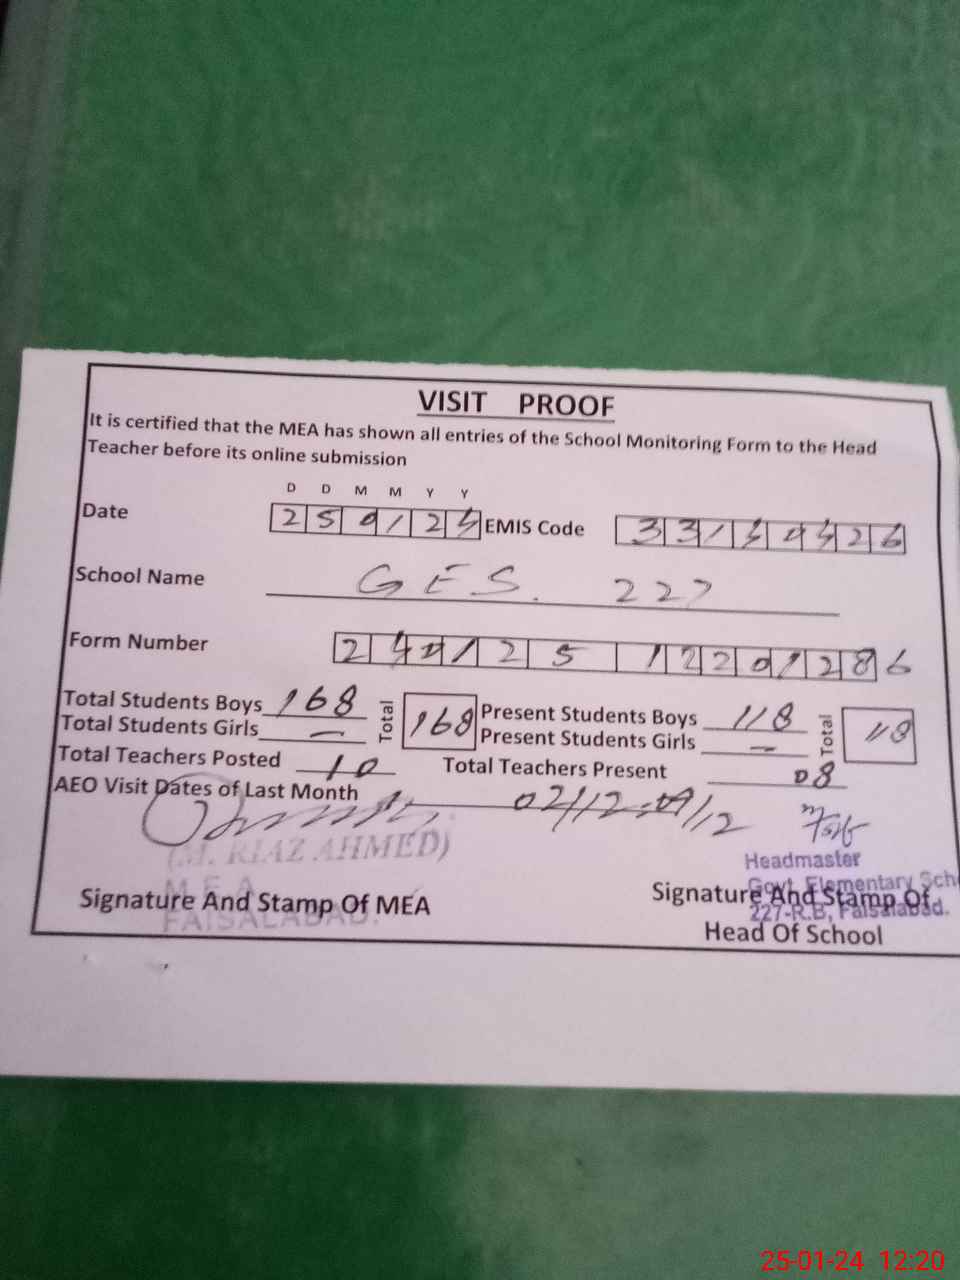 VISIT PROOF
It is certified that the MEA has shown all entries of the School Monitoring Form to the Head
Teacher before its online submission
D D M M Y Y
Date 250124 EMIS Code 33140426
School Name GES. 227
Form Number 24012512201286
Total Students Boys 168 Total 168 Present Students Boys 118 Total 118
Total Students Girls — Present Students Girls —
Total Teachers Posted 10 Total Teachers Present 08
AEO Visit Dates of Last Month 02/12, 09/12
(M. RIAZ AHMED)
M.E.A
FAISALABAD.
Signature And Stamp Of MEA
Headmaster
Govt. Elementary Sch
227-R.B, Faisalabad.
Signature And Stamp Of
Head Of School
25-01-24 12:20